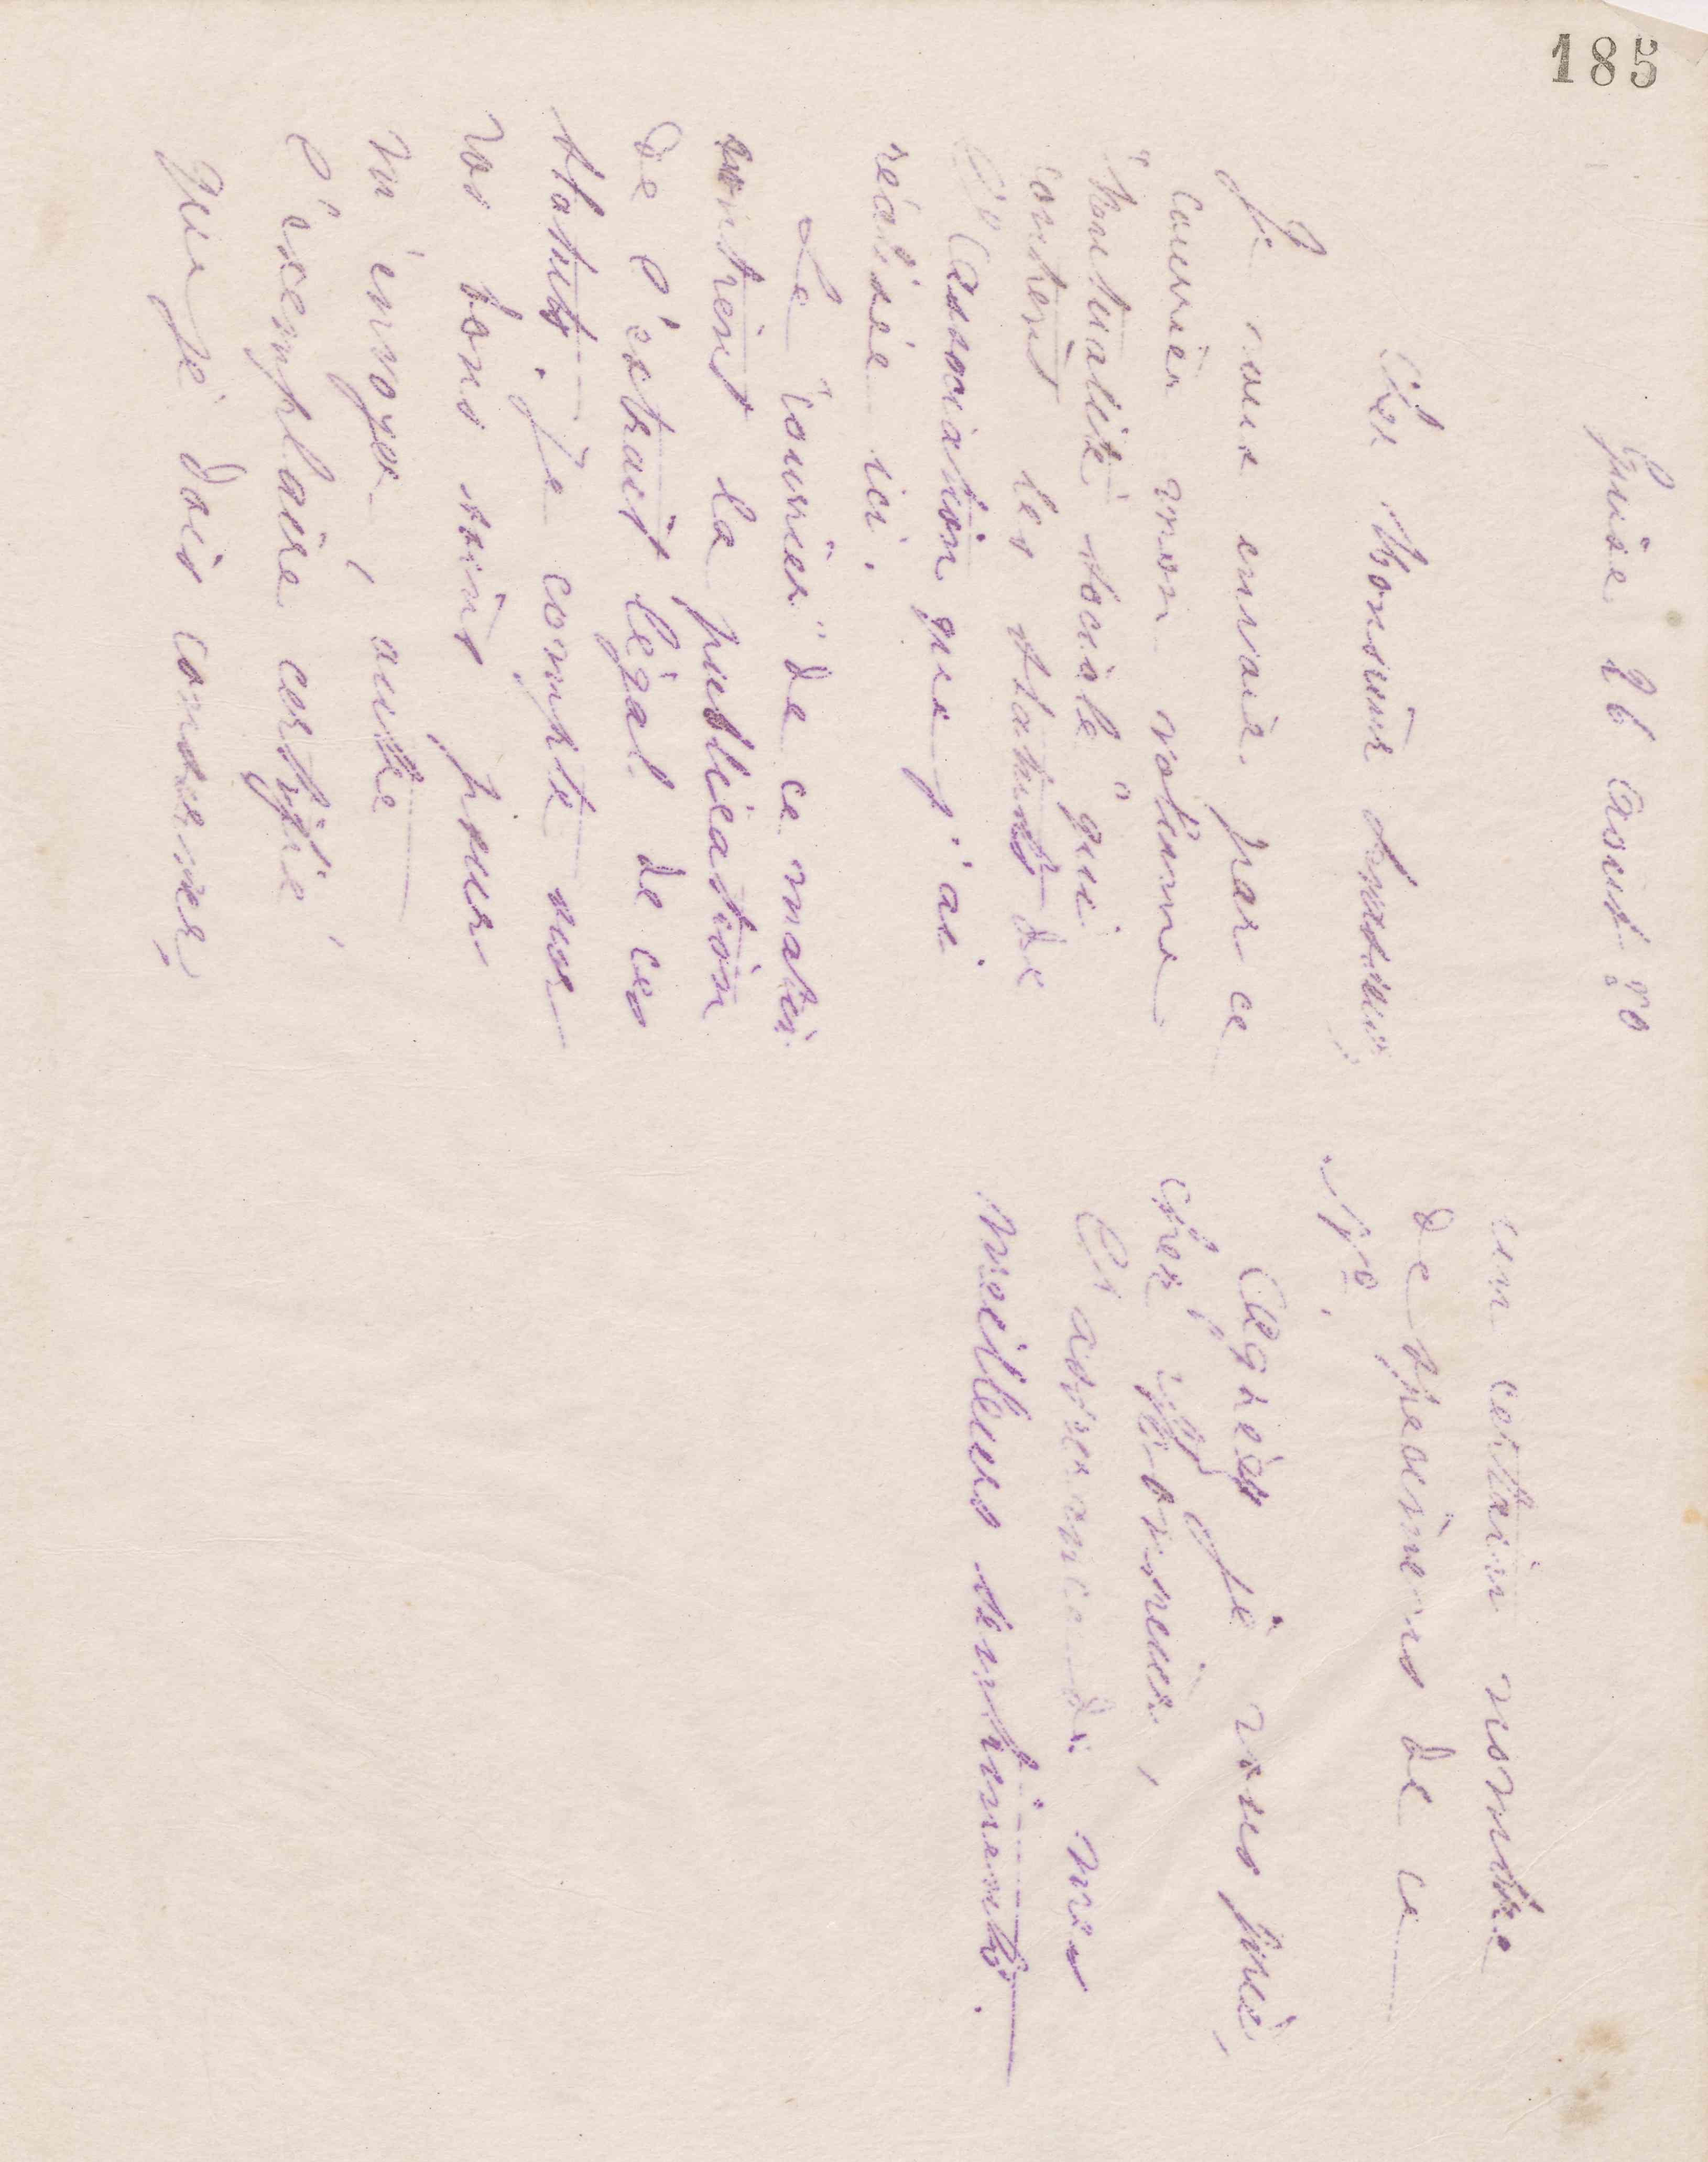 185
Guise 26 Aout 80
Cher Monsieur
Je vous envoie par ce
courrier mon volume
"Mutualité sociale" qui
contient les statuts de
l'Association que j'ai
réalisée ici.
Le "courrier" de ce matin
contient la publication
de l'extrait légal de ces
statuts. Je compte sur
vos bons soins pour
m'envoyer, outre
l'exemplaire certifié
que je dois conserver,
un certain nombre
de spécimens de ce
N°.
Agréez je vous prie,
cher Monsieur,
l'assurance de mes
meilleurs sentiments.